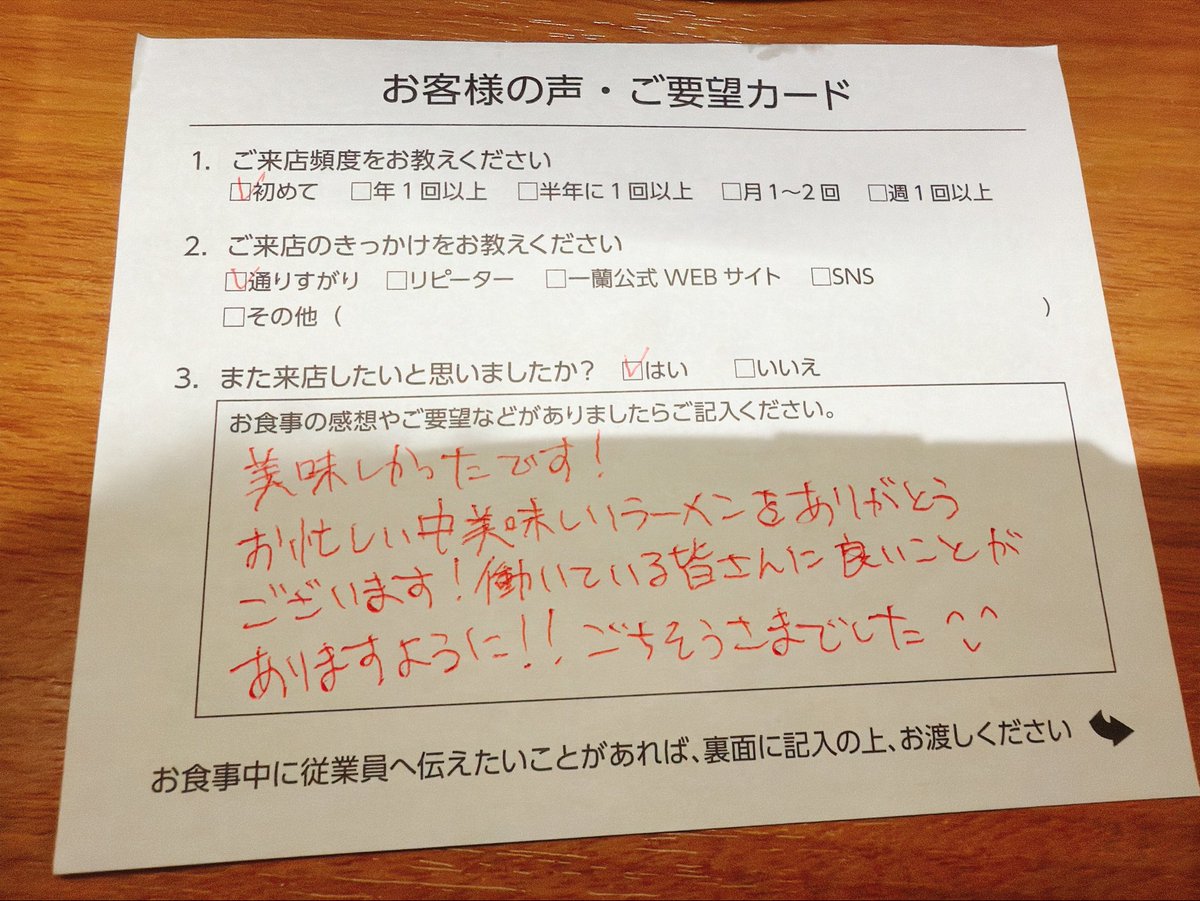 お客様の声・ご要望カード
1. ご来店頻度をお教えください
☑初めて □年1回以上 □半年に1回以上 □月1～2回 □週1回以上
2. ご来店のきっかけをお教えください
☑通りすがり □リピーター □一蘭公式WEBサイト □SNS
□その他（ ）
3. また来店したいと思いましたか？ ☑はい □いいえ
お食事の感想やご要望などがありましたらご記入ください。
美味しかったです！
お忙しい中美味しいラーメンをありがとう
ございます！働いている皆さんに良いことが
ありますように！！ごちそうさまでした ^^
お食事中に従業員へ伝えたいことがあれば、裏面に記入の上、お渡しください